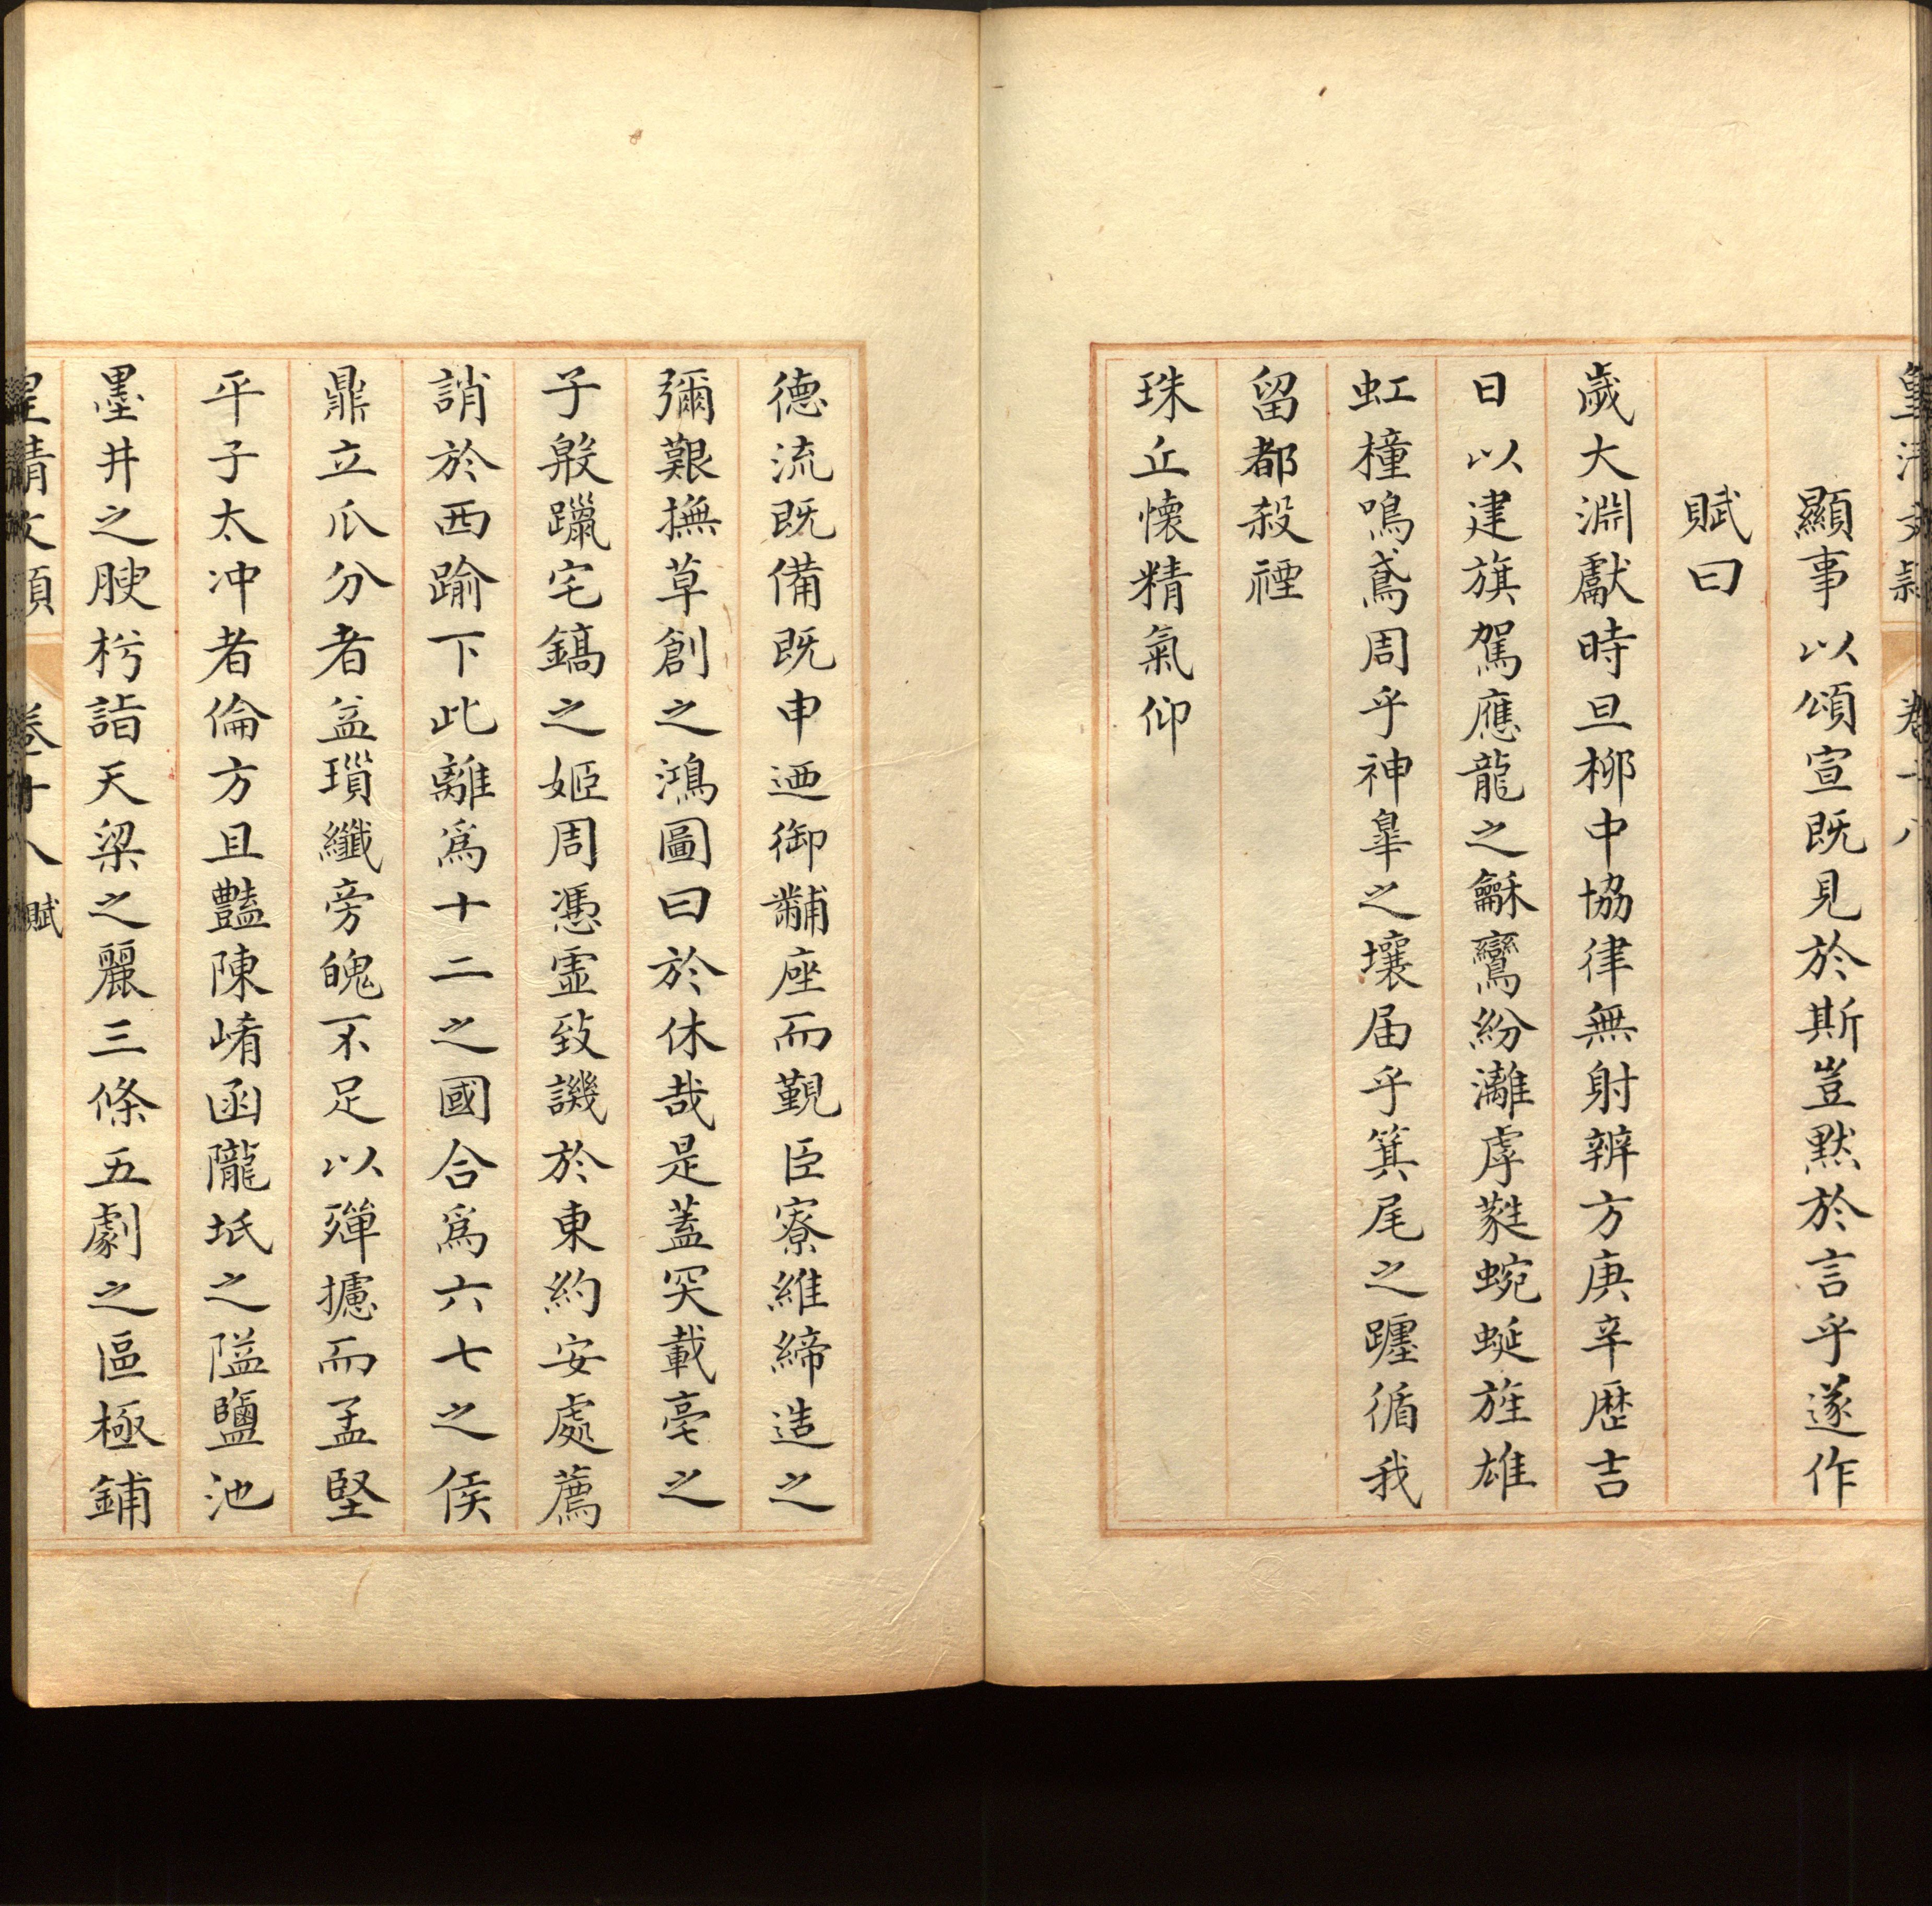 皇清文穎 卷十八
顯事以頌宣既見於斯豈黙於言乎遂作
賦曰
歲大淵獻時旦柳中協律無射辨方庚辛歴吉
日以建旗駕應龍之龢鸞紛灕虖蕤蜿蜒旌雄
虹橦鳴鳶周乎神臯之壤届乎箕尾之躔循我
留都殺禋
珠丘懐精氣仰
德流既備既申迺御黼座而覲臣寮維締造之
彌艱撫草創之鴻圖曰於休哉是蓋突載亳之
子毃躐宅鎬之姬周憑虛致譏於東約安處薦
誚於西踰下此離爲十二之國合爲六七之侯
鼎立瓜分者益瑣纖旁魄不足以殫攄而孟堅
平子太冲者倫方且豔陳崤函隴坻之隘鹽池
墨井之腴枍詣天梁之麗三條五劇之區極鋪
皇清文穎 卷十八 賦